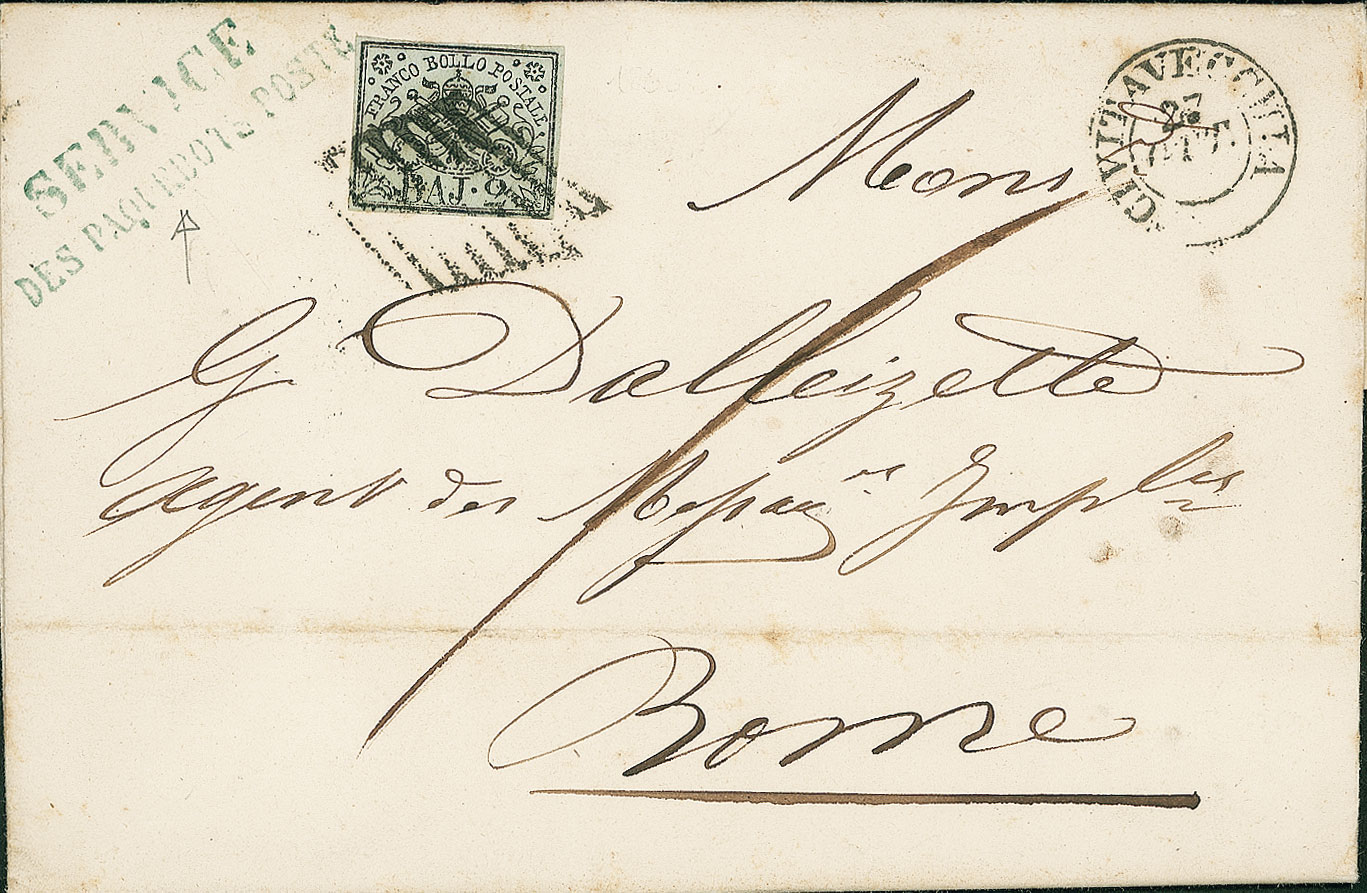 SERVICE
DES PAQUEBOTS POSTE
FRANCO BOLLO POSTALE
BAJ. 2
CIVITAVECCHIA
27
OTT.
Mons
G Dalleizette
Agent des Messag.es Imp.les
Rome